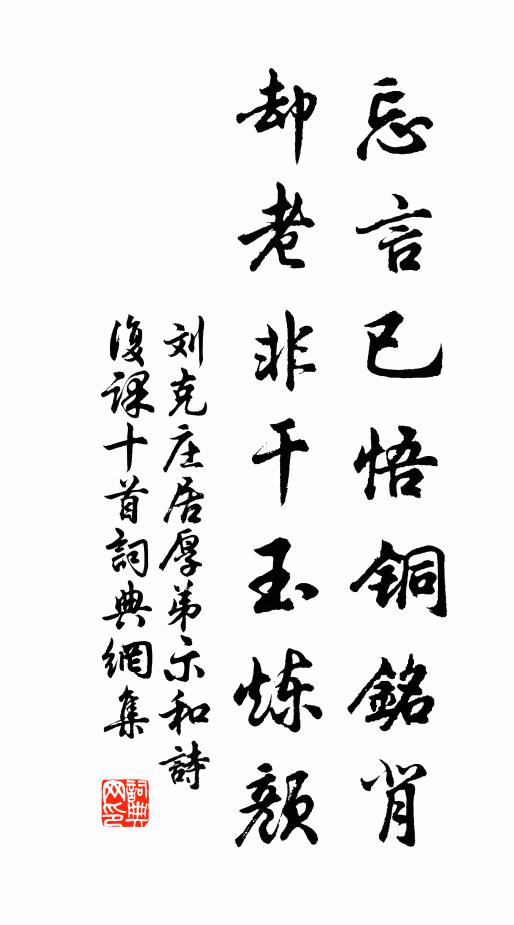 忘言已悟铜銘背
却老非干玉炼顔
刘克庄居厚弟示和詩
復課十首詞典網集
詞典
网印